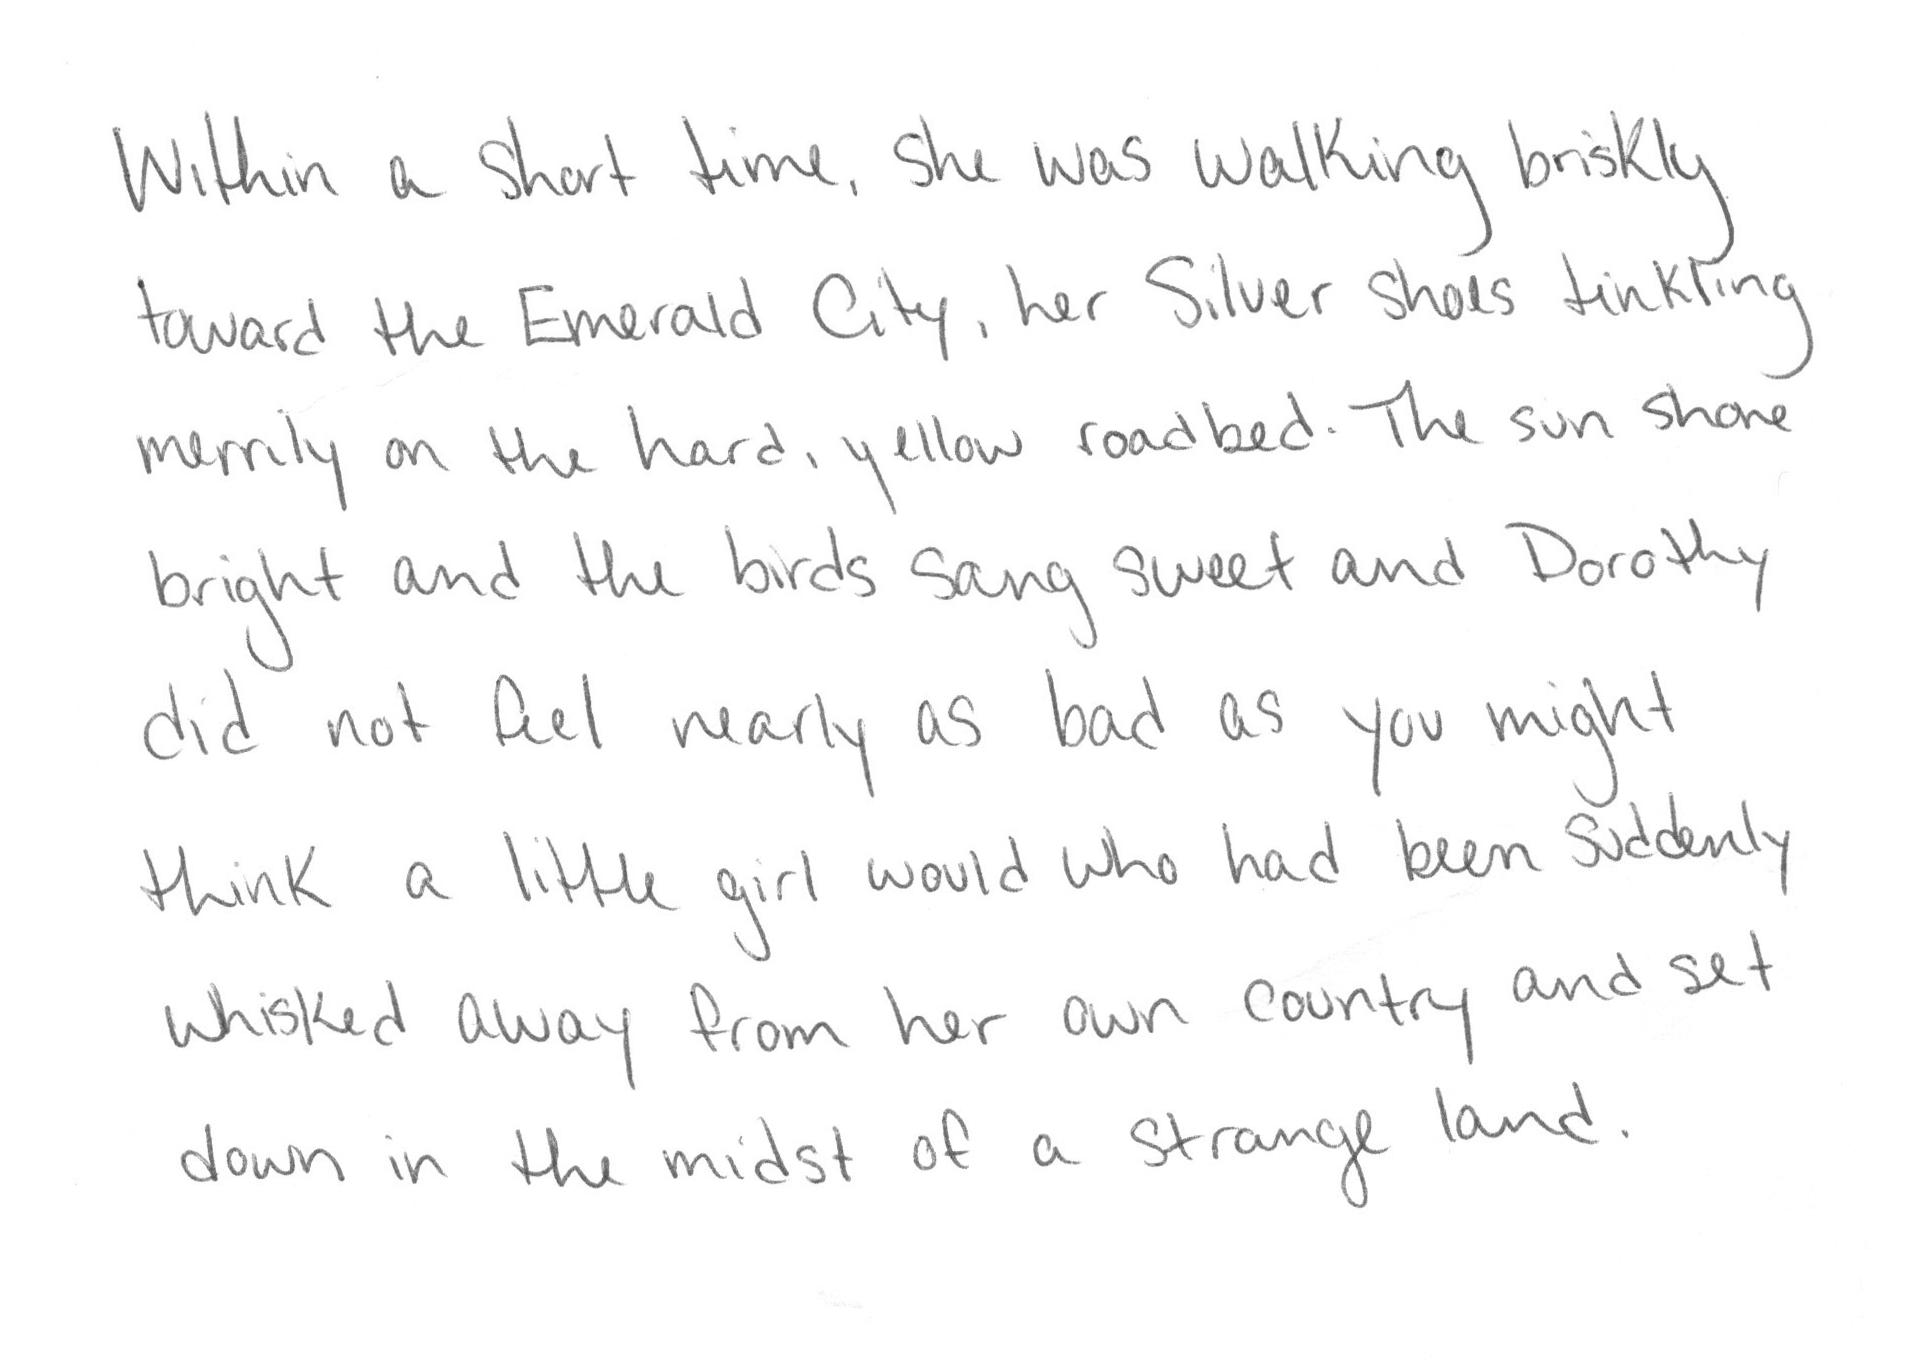 Within a short time, she was walking briskly
toward the Emerald City, her Silver shoes tinkling
merrily on the hard, yellow roadbed. The sun shone
bright and the birds sang sweet and Dorothy
did not feel nearly as bad as you might
think a little girl would who had been suddenly
whisked away from her own country and set
down in the midst of a strange land.